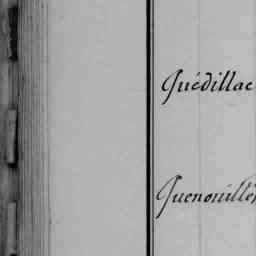 Quédillac
Quenouillè